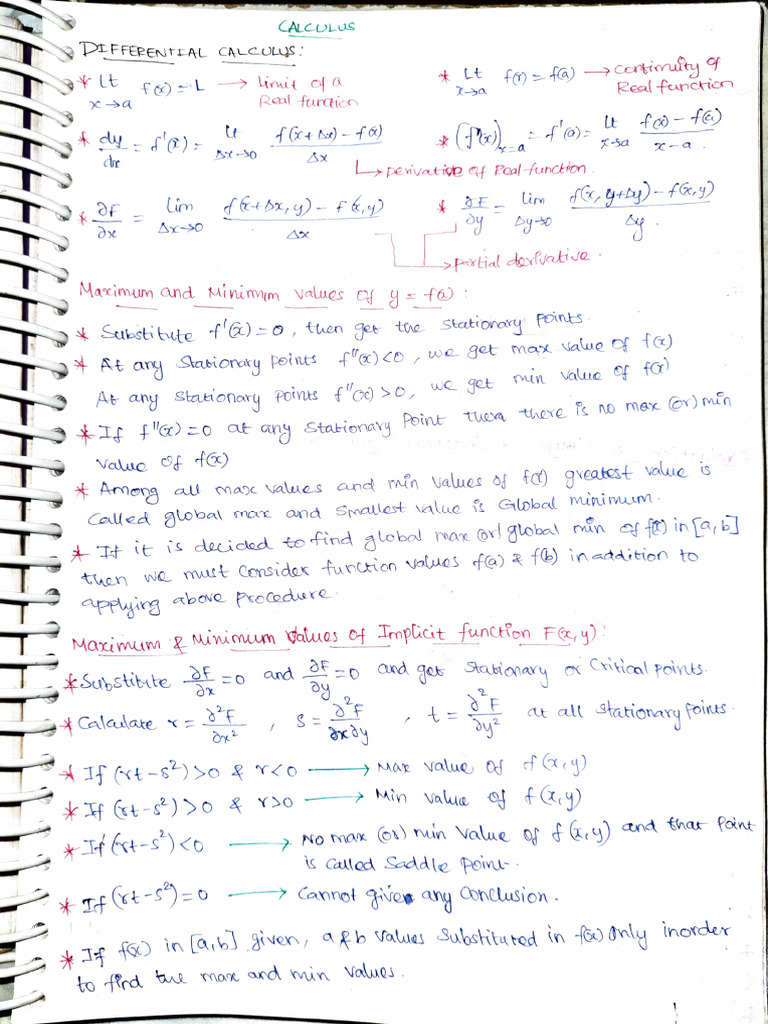 CALCULUS
DIFFERENTIAL CALCULUS:
* Lt x→a f(x) = L → limit of a Real function
* Lt x→a f(x) = f(a) → continuity of Real function
* dy/dx = f'(x) = lt Δx→0 f(x+Δx) – f(x) / Δx
* (f'(x))x=a = f'(a) = lt x→a f(x) – f(a) / x – a.
→ Derivative of Real function.
* ∂F/∂x = lim Δx→0 f(x+Δx, y) – f(x, y) / Δx
* ∂F/∂y = lim Δy→0 f(x, y+Δy) – f(x, y) / Δy.
→ partial derivative.
Maximum and Minimum values of y = f(x):
* Substitute f'(x) = 0, then get the stationary points.
* At any stationary points f''(x) < 0, we get max value of f(x)
At any stationary points f''(x) > 0, we get min value of f(x)
* If f''(x) = 0 at any stationary point then there is no max (or) min
value of f(x)
* Among all max values and min values of f(x) greatest value is
called global max and smallest value is Global minimum.
* If it is decided to find global max (or) global min of f(x) in [a, b]
then we must consider function values f(a) & f(b) in addition to
applying above procedure.
Maximum & Minimum values of Implicit function F(x, y):
* Substitite ∂F/∂x = 0 and ∂F/∂y = 0 and get stationary or critical points.
* Calculate r = ∂²F/∂x² , s = ∂²F/∂x∂y , t = ∂²F/∂y² at all stationary points.
* If (rt – s²) > 0 & r < 0 → Max value of f(x, y)
* If (rt – s²) > 0 & r > 0 → Min value of f(x, y)
* If (rt – s²) < 0 → No max (or) min value of f(x, y) and that point
is called Saddle point.
* If (rt – s²) = 0 → Cannot given any conclusion.
* If f(x) in [a, b] given, a & b values substituted in f(x) only inorder
to find the max and min values.